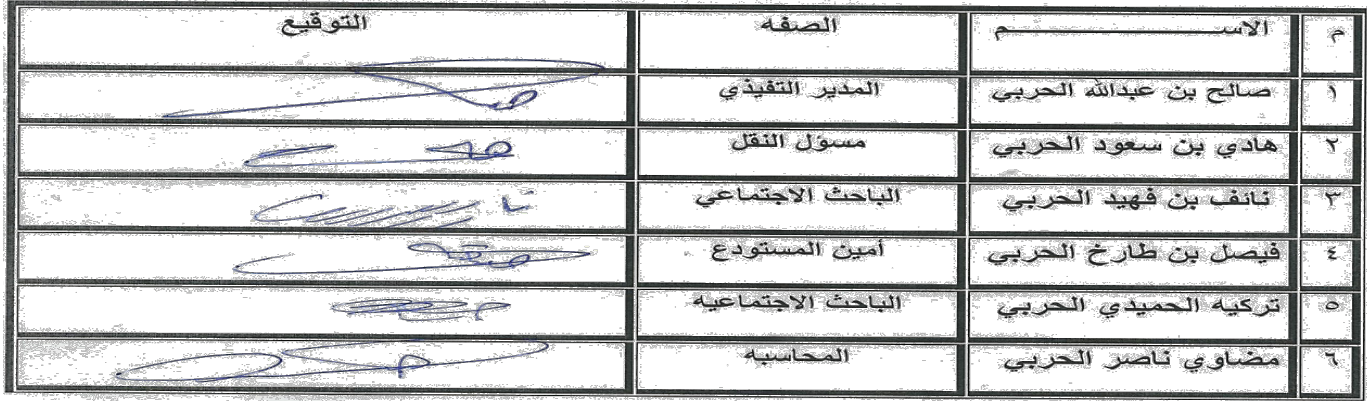 م الاسم الصفه التوقيع
١ صالح بن عبدالله الحربي المدير التفيذي
٢ هادي بن سعود الحربي مسؤل النقل
٣ نائف بن فهيد الحربي الباحث الاجتماعي
٤ فيصل بن طارخ الحربي أمين المستودع
٥ تركيه الحميدي الحربي الباحث الاجتماعيه
٦ مضاوي ناصر الحربي المحاسبه